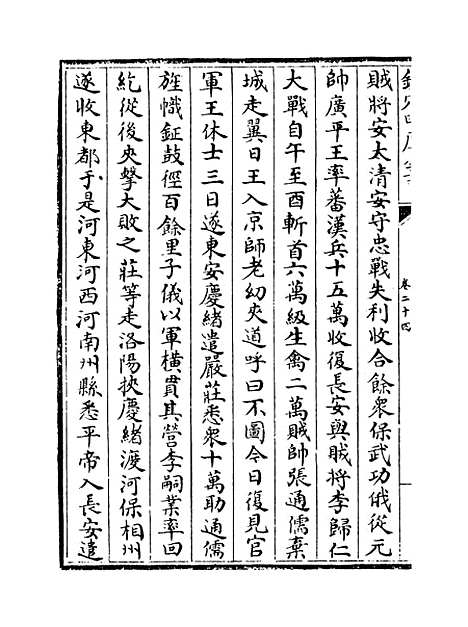 欽定四庫全書
卷二十四
賊將安太清安守忠戰失利收合餘衆保武功俄從元
帥廣平王率蕃漢兵十五萬收復長安與賊將李歸仁
大戰自午至酉斬首六萬級生禽二萬賊帥張通儒棄
城走翼日王入京師老幼夾道呼曰不圖今日復見官
軍王休士三日遂東安慶緒遣嚴莊悉衆十萬助通儒
旌幟鉦鼓徑百餘里子儀以軍横貫其營李嗣業率回
紇從後夾擊大敗之莊等走洛陽挾慶緒渡河保相州
遂收東都于是河東河西河南州縣悉平帝入長安遣